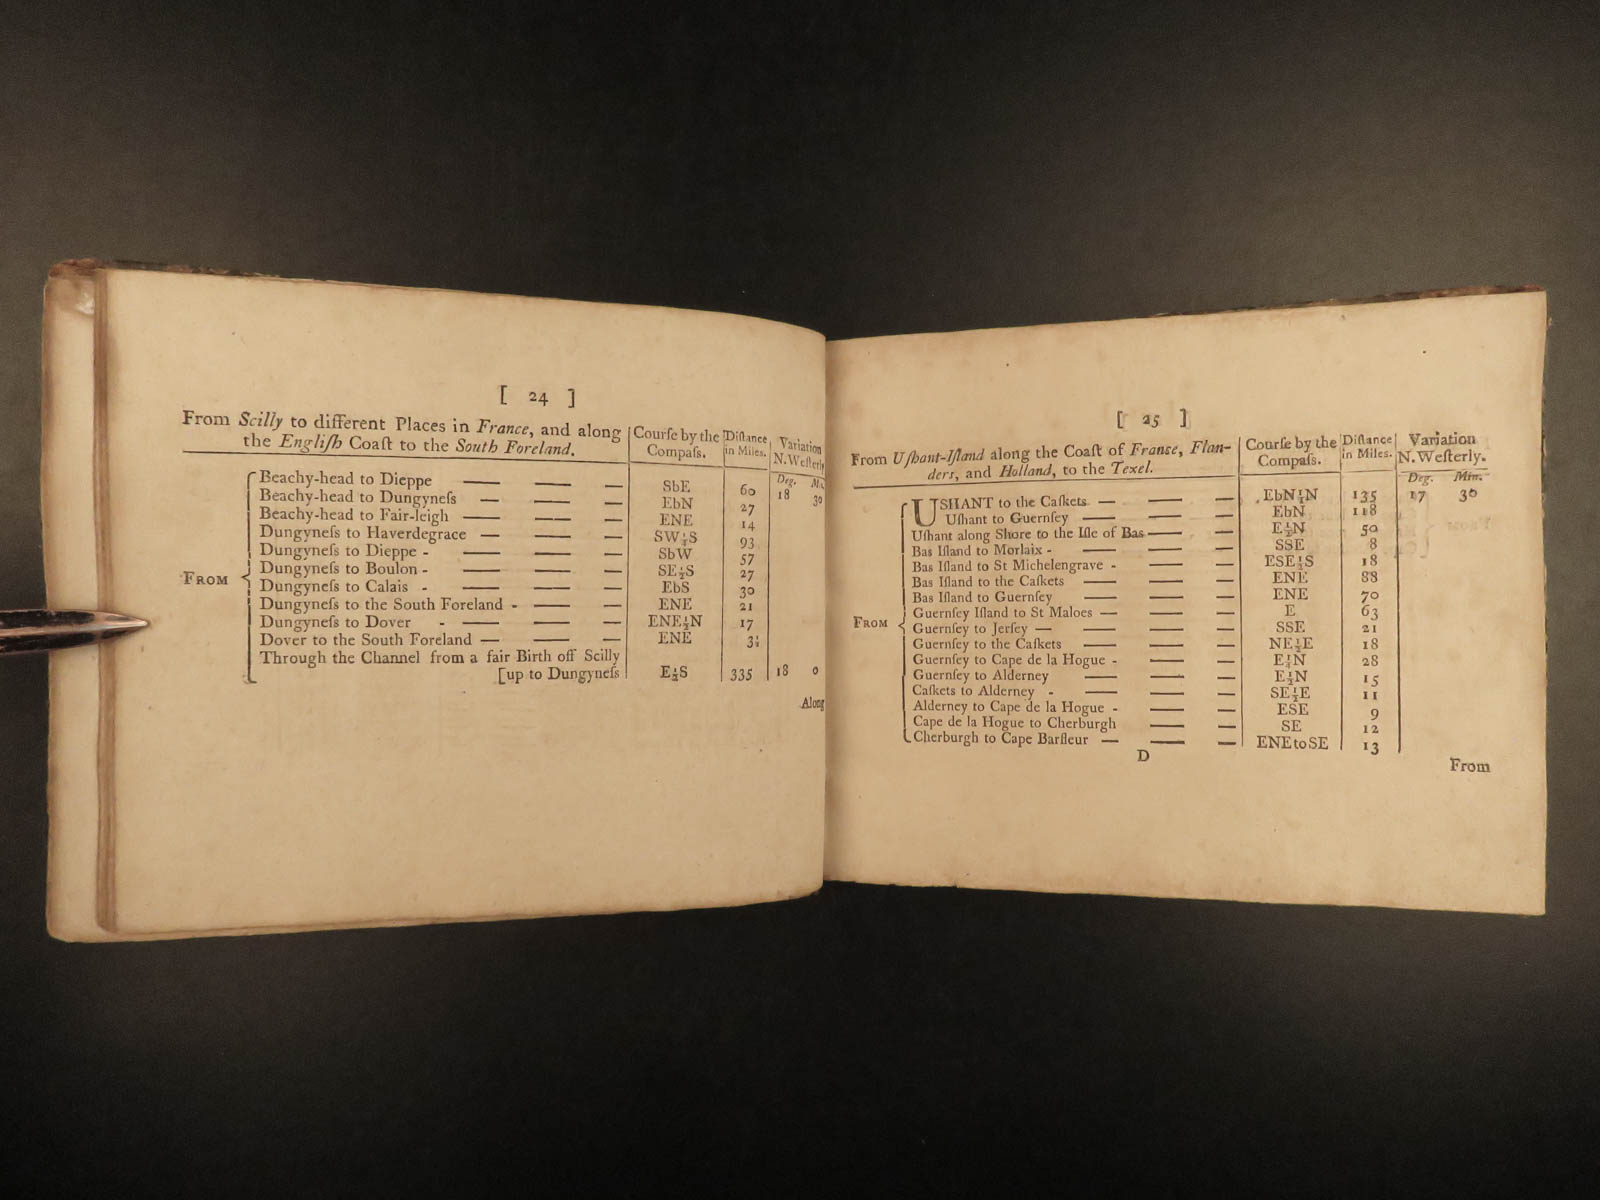 [ 24 ]
From Scilly to different Places in France, and along
the Engliſh Coaſt to the South Foreland.
Courſe by the
Compaſs.
Diſtance
in Miles.
Variation
N. Weſterly
Deg. Mi.
FROM
Beachy-head to Dieppe — — — SbE 60 18 30
Beachy-head to Dungyneſs — — — EbN 27
Beachy-head to Fair-leigh — — — ENE 14
Dungyneſs to Haverdegrace — — — SW¼S 93
Dungyneſs to Dieppe - — — — SbW 57
Dungyneſs to Boulon - — — — SE½S 27
Dungyneſs to Calais - — — — EbS 30
Dungyneſs to the South Foreland - — — ENE 21
Dungyneſs to Dover - — — — ENE½N 17
Dover to the South Foreland — — — ENE 3½
Through the Channel from a fair Birth off Scilly
[up to Dungyneſs E½S 335 18 0
Along
[ 25 ]
From Uſhant-Iſland along the Coaſt of Franse, Flan-
ders, and Holland, to the Texel.
Courſe by the
Compaſs.
Diſtance
in Miles.
Variation
N. Weſterly.
Deg. Min.
FROM
USHANT to the Caſkets — — — EbN½N 135 17 30
Uſhant to Guernſey — — — EbN 118
Uſhant along Shore to the Iſle of Bas — — E½N 50
Bas Iſland to Morlaix - — — SSE 8
Bas Iſland to St Michelengrave - — — ESE½S 18
Bas Iſland to the Caſkets — — — ENE 88
Bas Iſland to Guernſey — — — ENE 70
Guernſey Iſland to St Maloes — — — E 63
Guernſey to Jerſey — — — SSE 21
Guernſey to the Caſkets — — — NE½E 18
Guernſey to Cape de la Hogue - — — E¼N 28
Guernſey to Alderney — — — E½N 15
Caſkets to Alderney - — — — SE½E 11
Alderney to Cape de la Hogue - — — ESE 9
Cape de la Hogue to Cherburgh — — SE 12
Cherburgh to Cape Barfleur — — — ENE to SE 13
D
From